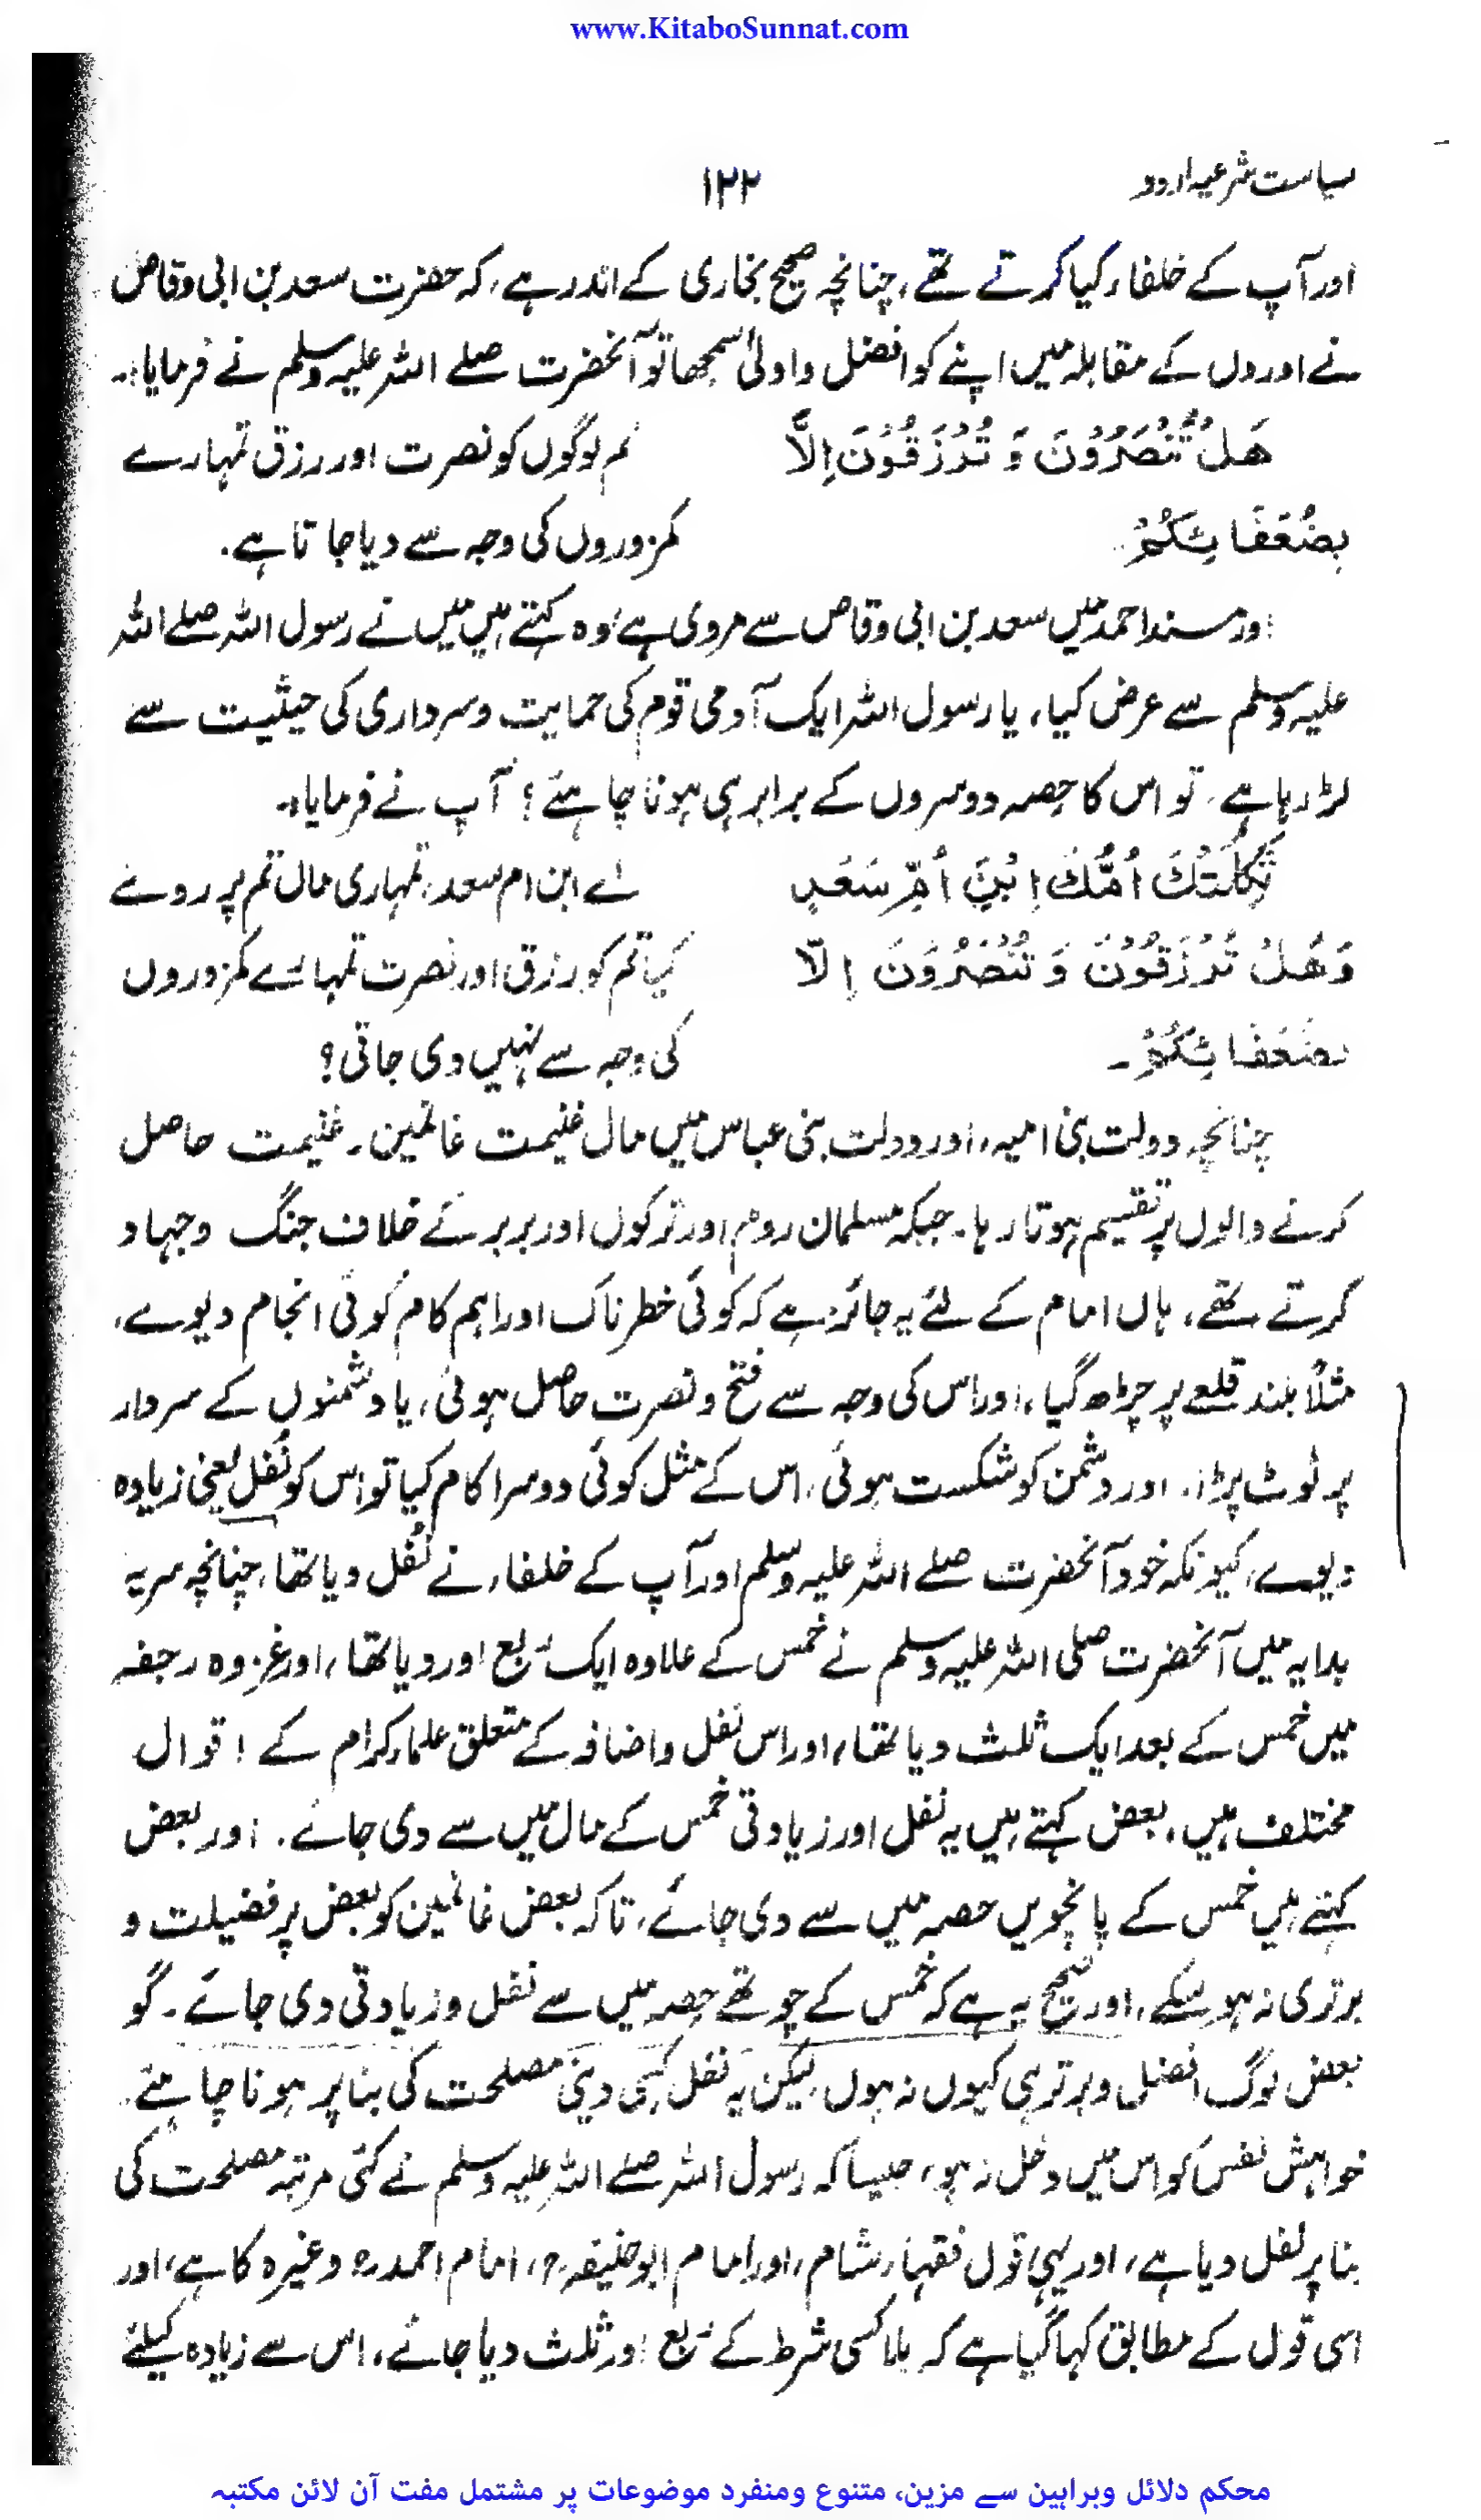 www.KitaboSunnat.com
سیاست شرعیہ اردو
۱۲۲
اور آپ کے خلفاء کیا کرتے تھے، چنانچہ صحیح بخاری کے اندر ہے، کہ حضرت سعد بن ابی وقاص
نے اوروں کے مقابلہ میں اپنے کو افضل و اولیٰ سمجھا تو آنحضرت صلے اللہ علیہ وسلم نے فرمایا:۔
هَلْ تُنْصَرُوْنَ وَ تُرْزَقُوْنَ اِلَّا
تم لوگوں کو نصرت اور رزق تمہارے
بِضُعَفَائِكُمْ
کمزوروں کی وجہ سے دیا جاتا ہے۔
اور مسند احمد میں سعد بن ابی وقاص سے مروی ہے، وہ کہتے ہیں میں نے رسول اللہ صلے اللہ
علیہ وسلم سے عرض کیا، یا رسول اللہ ایک آدمی قوم کی حمایت و سرداری کی حیثیت سے
لڑ رہا ہے، تو اس کا حصہ دوسروں کے برابر ہی ہونا چاہئے؟ آپ نے فرمایا:۔
ثَكِلَتْكَ اُمُّكَ اِبْنَ اُمِّ سَعْدٍ
اے ابن ام سعد، تمہاری ماں تم پر روئے
وَهَلْ تُرْزَقُوْنَ وَ تُنْصَرُوْنَ اِلَّا
کیا تم کو رزق اور نصرت تمہارے کمزوروں
بِضُعَفَائِكُمْ ۔
کی وجہ سے نہیں دی جاتی؟
چنانچہ دولت بنی امیہ، اور دولت بنی عباس میں مال غنیمت غانمین۔ غنیمت حاصل
کرنے والوں پر تقسیم ہوتا رہا۔ جبکہ مسلمان روم اور ترکوں اور بربر کے خلاف جنگ و جہاد
کرتے تھے، ہاں امام کے لئے یہ جائز ہے کہ کوئی خطرناک اور اہم کام کوئی انجام دیوے،
مثلاً بلند قلعے پر چڑھ گیا، اور اس کی وجہ سے فتح و نصرت حاصل ہوئی، یا دشمنوں کے سردار
پر ٹوٹ پڑا، اور دشمن کو شکست ہوئی، اس کے مثل کوئی دوسرا کام کیا تو اس کو نَفل یعنی زیادہ
دیوے، کیونکہ خود آنحضرت صلے اللہ علیہ وسلم اور آپ کے خلفاء نے نَفل دیا تھا، چنانچہ سریہ
بدایہ میں آنحضرت صلی اللہ علیہ وسلم نے خمس کے علاوہ ایک رُبع اور دیا تھا، اور غزوہ رجفہ
میں خمس کے بعد ایک ثلث دیا تھا، اور اس نفل و اضافہ کے متعلق علماء کرام کے اقوال
مختلف ہیں، بعض کہتے ہیں یہ نفل اور زیادتی خمس کے مال میں سے دی جائے۔ اور بعض
کہتے ہیں خمس کے پانچویں حصہ میں سے دی جائے، تاکہ بعض غانمین کو بعض پر فضیلت و
برتری نہ ہو سکے، اور صحیح یہ ہے کہ خمس کے چوتھے حصہ میں سے نفل و زیادتی دی جائے۔ گو
بعض لوگ افضل و برتر ہی کیوں نہ ہوں لیکن یہ نفل کسی دینی مصلحت کی بنا پر ہونا چاہئے۔
خواہش نفس کو اس میں دخل نہ ہو، جیسا کہ رسول اللہ صلے اللہ علیہ وسلم نے کئی مرتبہ مصلحت کی
بنا پر نفل دیا ہے، اور یہی قول فقہاء شام، اور امام ابو حنیفہ رح، امام احمد رح وغیرہ کا ہے، اور
اسی قول کے مطابق کہا گیا ہے کہ بلا کسی شرط کے رُبع اور ثلث دیا جائے، اس سے زیادہ کیلئے
محکم دلائل وبراہین سے مزین، متنوع ومنفرد موضوعات پر مشتمل مفت آن لائن مکتبہ